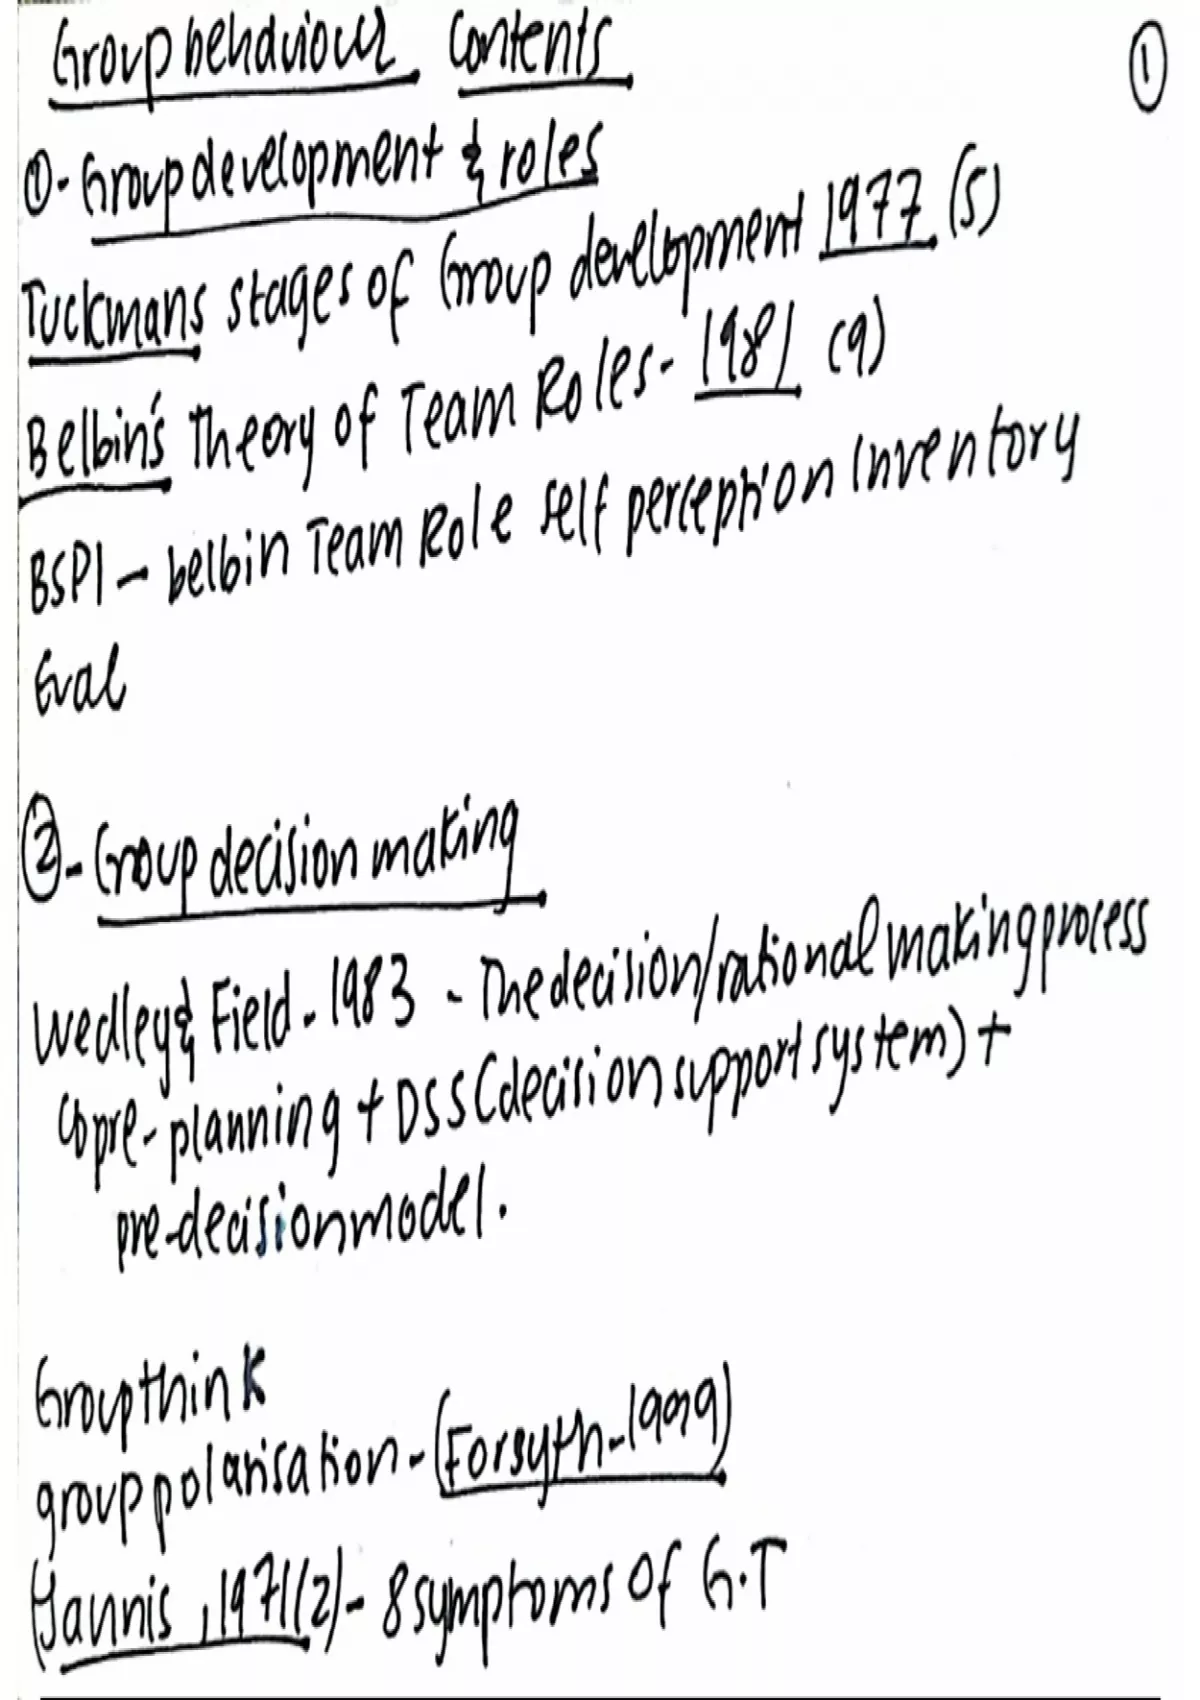 Group behaviour Contents
①
①- Group development & roles
Tuckmans stages of Group development 1977 (5)
Belbin's Theory of Team Roles - 1981 (9)
BSPI - belbin Team Role self perception Inventory
Eval
②- Group decision making
Wedley & Field - 1983 - The decision/rational making process
↳ pre-planning + DSS (decision support system) +
pre-decision model.
Group think
group polarisation - (Forsyth - 1999)
(Jannis, 1971/2) - 8 symptoms of G.T